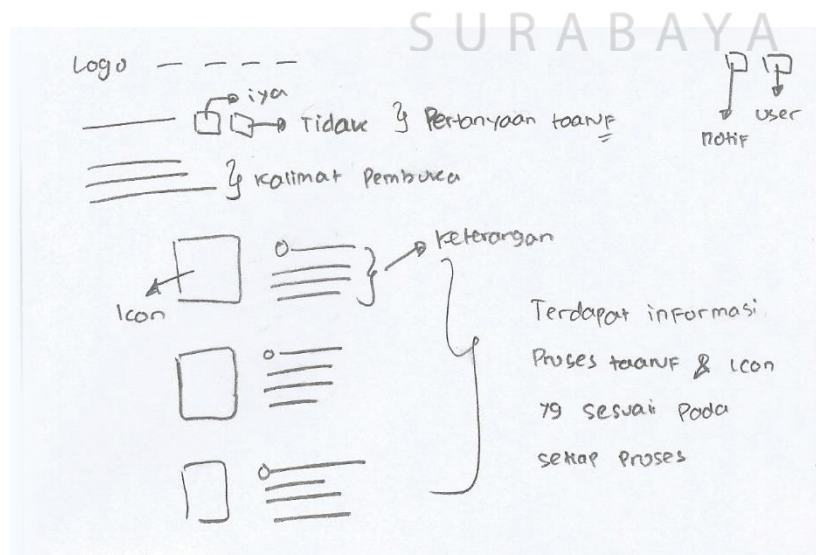 SURABAYA
Logo
iya
Tidak
Pertanyaan taaruf
notif
user
Kalimat Pembuka
Icon
Keterangan
Terdapat informasi
Proses taaruf & icon
yg sesuai pada
setiap proses